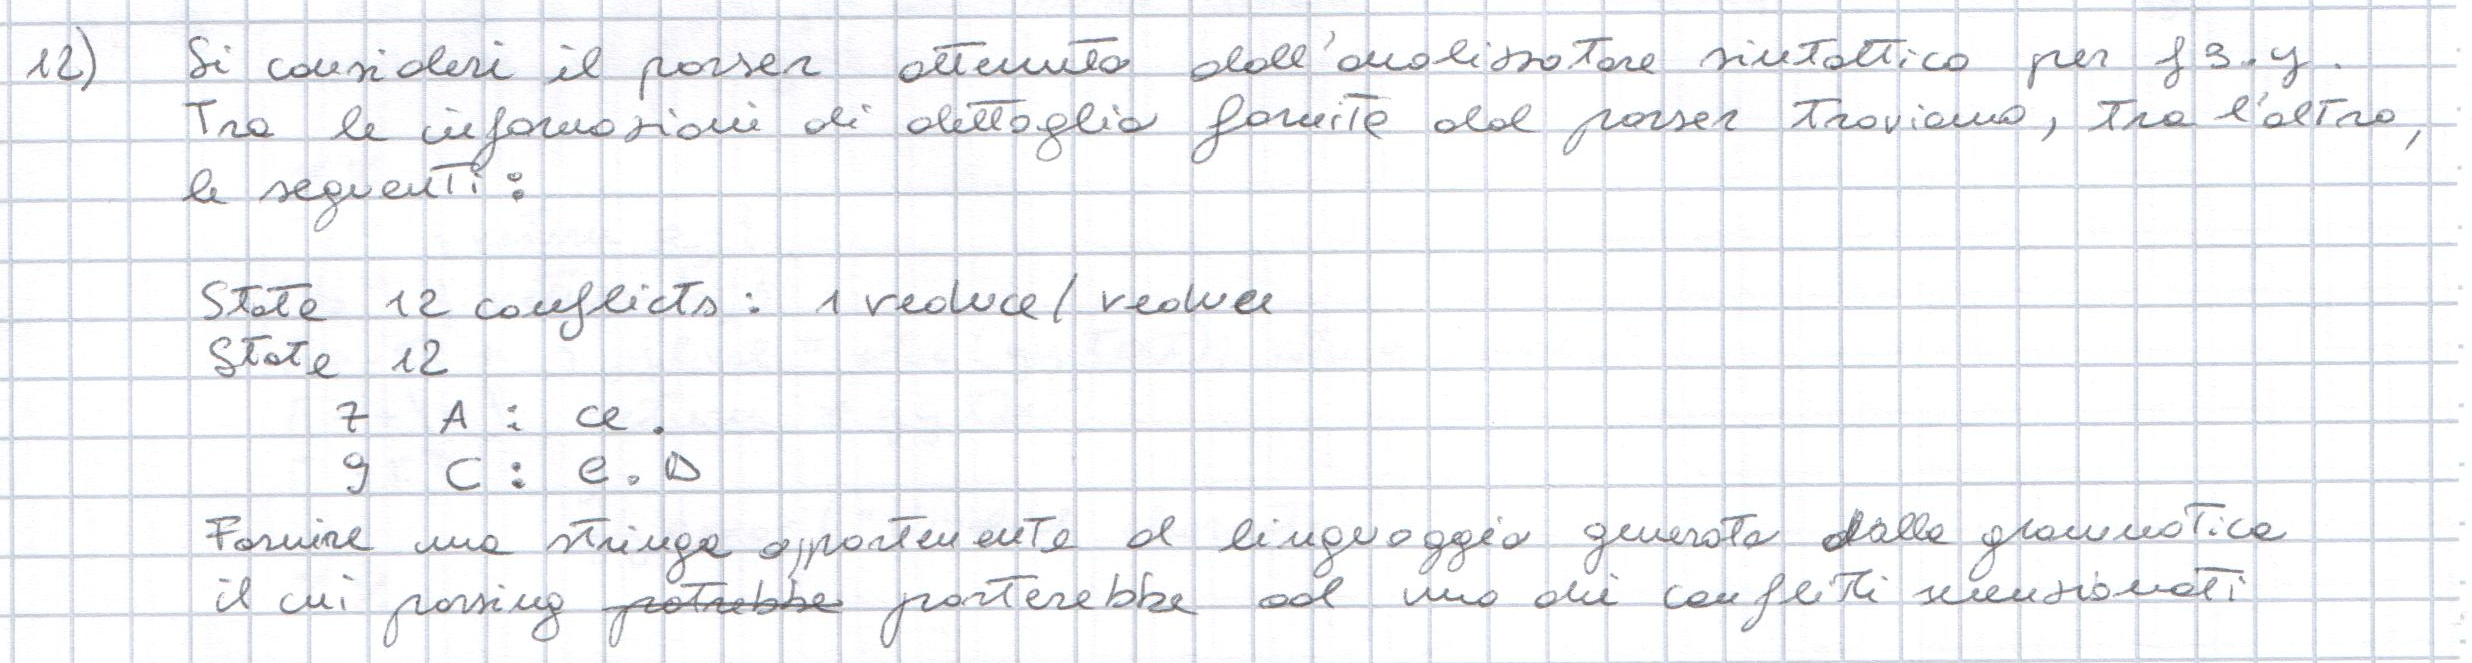 12) Si consideri il parser ottenuto dall'analizzatore sintattico per f3.y.
Tra le informazioni di dettaglio fornite dal parser troviamo, tra l'altro,
le seguenti:
State 12 conflicts: 1 reduce/reduce
State 12
7 A: ce.
9 C: e.D
Fornire una stringa appartenente al linguaggio generato dalla grammatica
il cui parsing potrebbe porterebbe ad uno dei conflitti menzionati